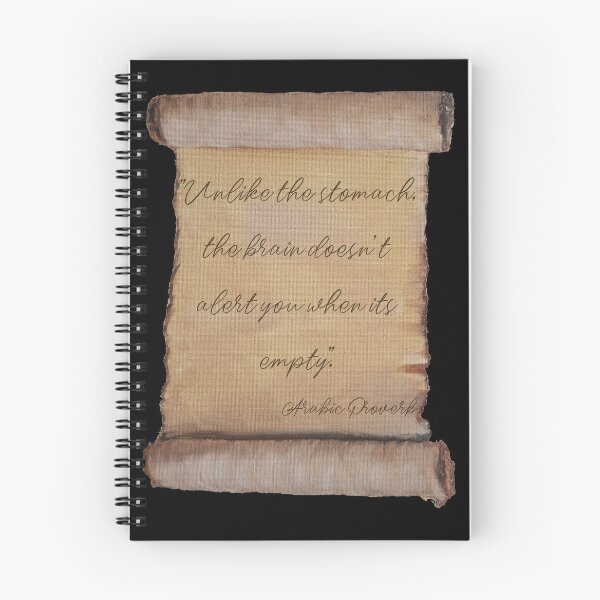 "Unlike the stomach,
the brain doesn't
alert you when its
empty".
Arabic Proverb